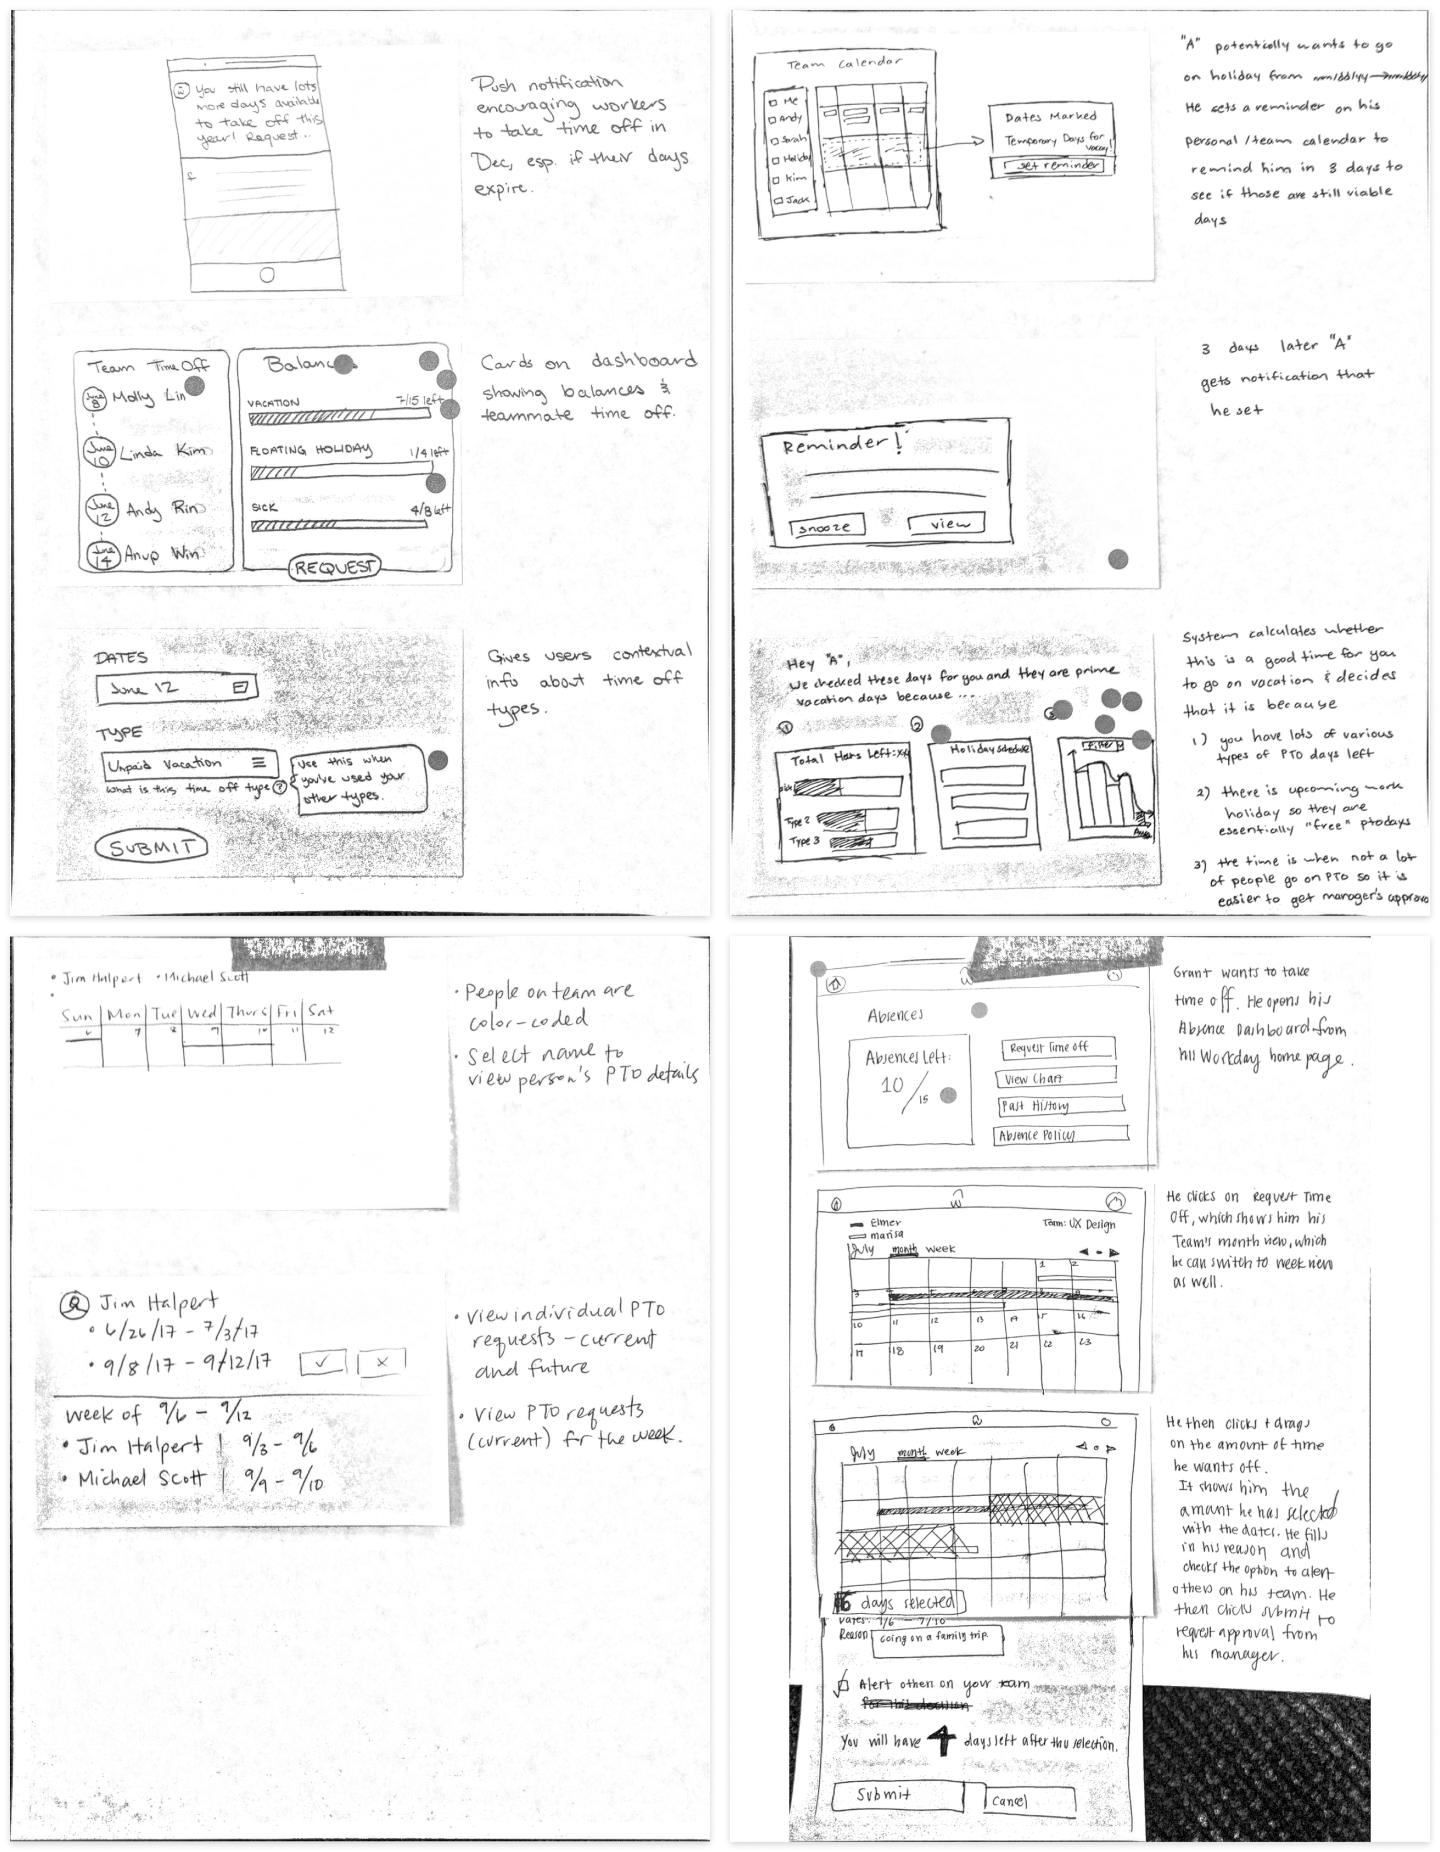 You still have lots
more days available
to take off this
year! Request...
Push notification
encouraging workers
to take time off in
Dec, esp. if their days
expire.
Team Time Off
June 8 Molly Lin
June 10 Linda Kim
June 12 Andy Rin
June 14 Anup Win
Balances
VACATION 7/15 left
FLOATING HOLIDAY 1/4 left
SICK 4/8 left
REQUEST
Cards on dashboard
showing balances &
teammate time off.
DATES
June 12
TYPE
Unpaid Vacation
What is this time off type ?
Use this when
you've used your
other types.
SUBMIT
Gives users contextual
info about time off
types.
Team Calendar
Me
Andy
Sarah
Holiday
Kim
Jack
Dates Marked
Temporary Days for
vacay!
set reminder
"A" potentially wants to go
on holiday from mm/dd/yy → mm/dd/yy
He sets a reminder on his
personal / team calendar to
remind him in 3 days to
see if those are still viable
days
Reminder!
snooze
view
3 days later "A"
gets notification that
he set
Hey "A",
we checked these days for you and they are prime
vacation days because ...
1
2
3
Total Hours Left: xx
sick
Type 2
Type 3
Holiday schedule
Filter
System calculates whether
this is a good time for you
to go on vacation & decides
that it is because
1) you have lots of various
types of PTO days left
2) there is upcoming work
holiday so they are
essentially "free" pto days
3) the time is when not a lot
of people go on PTO so it is
easier to get manager's approval
• Jim Halpert • Michael Scott
Sun Mon Tue Wed Thurs Fri Sat
6 7 8 9 10 11 12
• People on team are
color-coded
• Select name to
view person's PTO details
Jim Halpert
• 6/26/17 - 7/3/17
• 9/8/17 - 9/12/17
week of 9/6 - 9/12
• Jim Halpert | 9/3 - 9/6
• Michael Scott | 9/9 - 9/10
• View individual PTO
requests - current
and future
• View PTO requests
(current) for the week.
Absences
Absences Left:
10/15
Request Time off
View Chart
Past History
Absence Policy
Grant wants to take
time off. He opens his
Absence Dashboard from
his Workday home page.
W
Elmer
marisa
Team: UX Design
July month week
1 2
3
10 11 12 13 14 15 16
17 18 19 20 21 22 23
He clicks on Request Time
Off, which shows him his
Team's month view, which
he can switch to week view
as well.
July month week
6 days selected
Dates: 7/6 - 7/10
Reason Going on a family trip.
Alert others on your team
for this decision
You will have 4 days left after this selection.
Submit
Cancel
He then clicks + drags
on the amount of time
he wants off.
It shows him the
amount he has selected
with the dates. He fills
in his reason and
checks the option to alert
others on his team. He
then clicks submit to
request approval from
his manager.